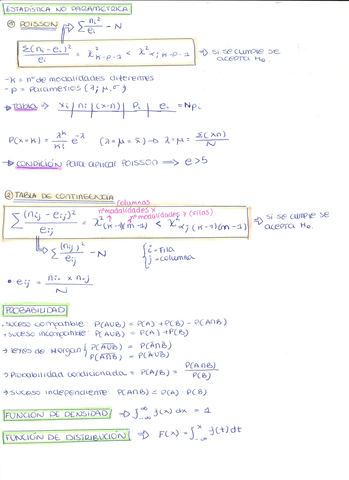 ESTADÍSTICA NO PARAMÉTRICA
① POISSON → Σ ni²/ei − N
Σ(ni − ei)²/ei = χ²k-p-1 < χ²α; k-p-1 ⇒ si se cumple se acepta H₀.
- k = nº de modalidades diferentes
- p = parámetros (λ, μ, σ)
→ Tabla → xi | ni | (x·n) | pi | ei = N·pi
P(x=k) = λ^k/k! e^-λ (λ = μ = x̄) → λ = μ = Σ(xn)/N
→ CONDICIÓN para aplicar POISSON ⇒ e > 5
② TABLA DE CONTINGENCIA
(columnas
nº modalidades x
nº modalidades y (filas)
Σ (nij − eij)²/eij = χ²(k-1)(m-1) < χ²α; (k-1)(m-1) ⇒ si se cumple se acepta H₀.
→ Σ (nij)²/eij − N
{ i = fila
j = columna
• eij = ni. x n.j / N
PROBABILIDAD
• suceso compatible: P(A∪B) = P(A) + P(B) − P(A∩B)
• suceso incompatible: P(A∪B) = P(A) + P(B)
→ leyes de Morgan { P(A∪B) = P(A∩B)
P(A∩B) = P(A∪B)
→ Probabilidad condicionada = P(A/B) = P(A∩B)/P(B)
→ suceso independiente: P(A∩B) = P(A) · P(B)
FUNCIÓN DE DENSIDAD → ∫-∞^∞ f(x) dx = 1
FUNCIÓN DE DISTRIBUCIÓN ⇒ F(x) = ∫-∞^x f(t) dt